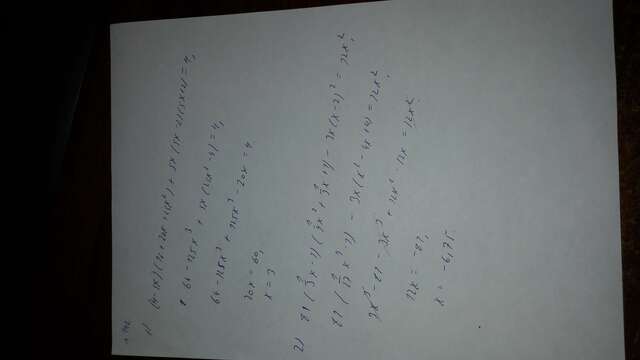 1)
(4-5x)(16+20x+25x²) + 5x(5x-2)(5x+2) = 4,
64-125x³ + 5x(25x²-4) = 4,
64-125x³ + 125x³ - 20x = 4
20x = 60,
x = 3
2) 81(1/3x-1)(1/9x²+1/3x+1) - 3x(x-2)² = 12x²,
81(1/27x³-1) - 3x(x²-4x+4) = 12x²,
3x³-81-3x³+12x²-12x = 12x²
12x = -81,
x = -6,75.